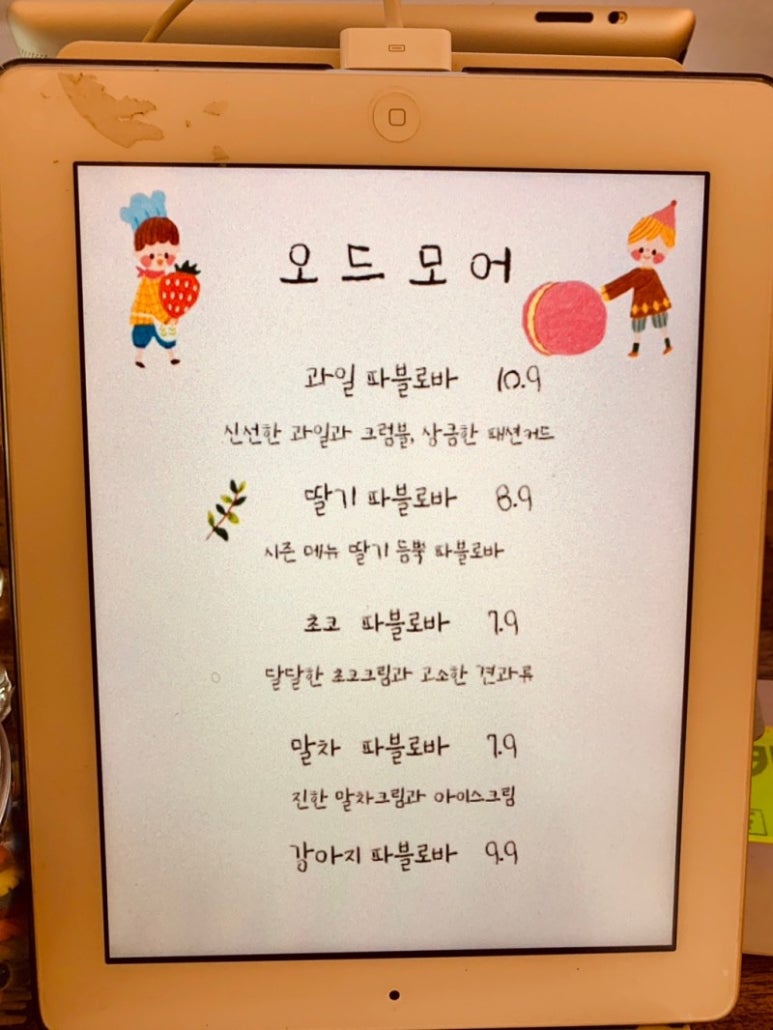 오드모어
과일 파블로바 10.9
신선한 과일과 크럼블, 상큼한 패션커드
딸기 파블로바 8.9
시즌 메뉴 딸기 듬뿍 파블로바
초코 파블로바 7.9
달달한 초코크림과 고소한 견과류
말차 파블로바 7.9
진한 말차크림과 아이스크림
강아지 파블로바 9.9